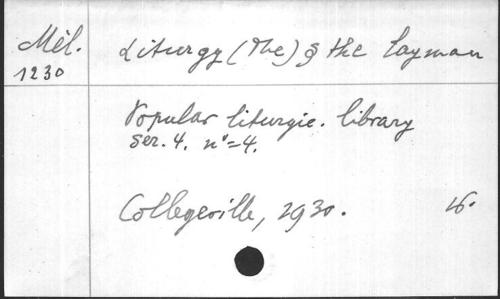 Mél.
1230
Liturgy (The) & the layman
Popular liturgic. library
ser. 4. n°=4.
Collegeville, 1930. 16.